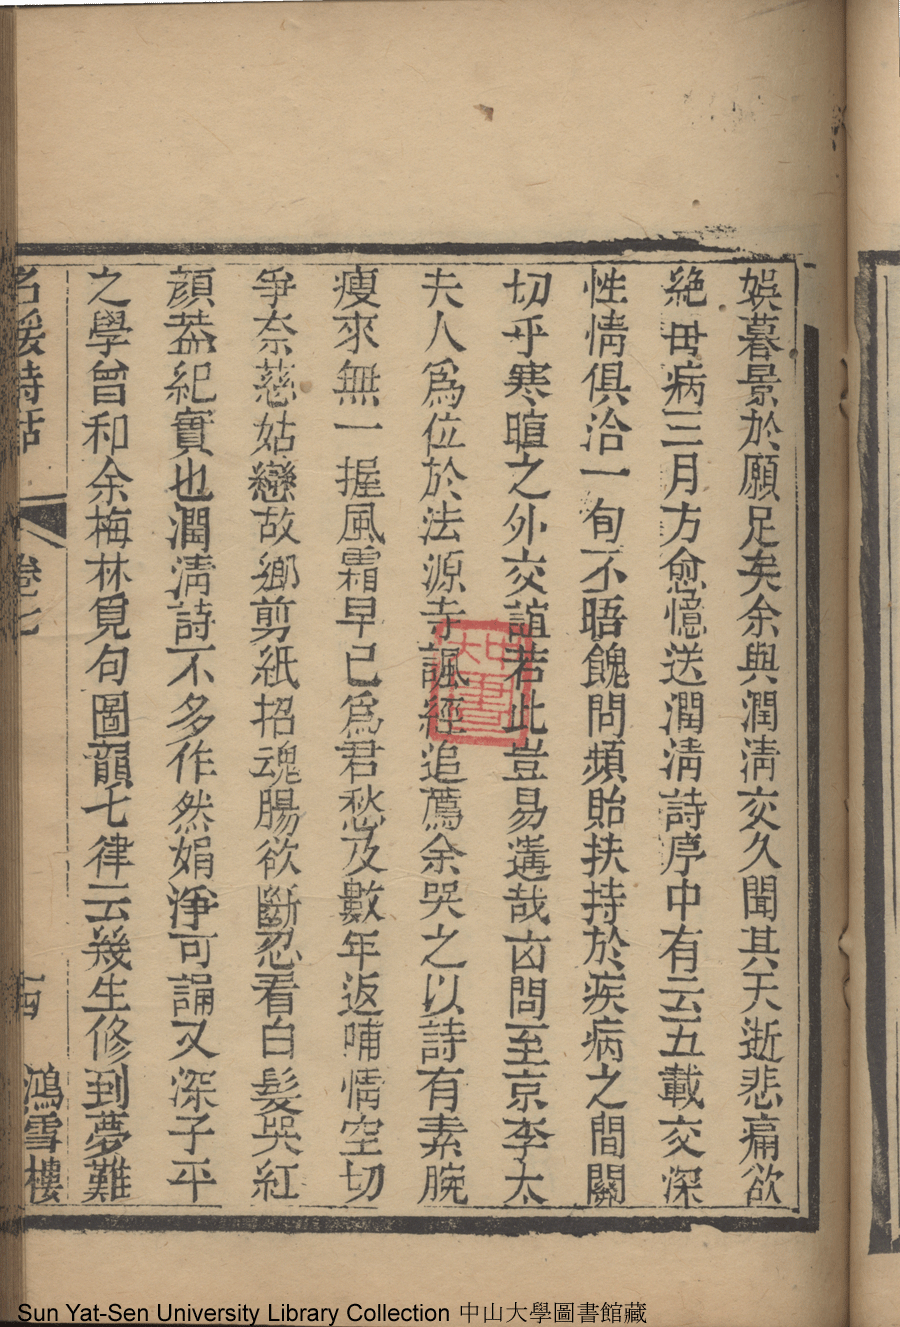 娛暮景於願足矣余與潤清交久聞其夭逝悲痛欲
絶毋病三月方愈憶送潤清詩序中有云五載交深
性情俱洽一旬不晤餽問頻貽扶持於疾病之間關
切乎寒暄之外交誼若此豈易遘哉凶問至京李太
夫人爲位於法源寺諷經追薦余哭之以詩有素腕
瘦來無一握風霜早已爲君愁及數年返哺情空切
爭奈慈姑戀故鄉剪紙招魂腸欲斷忍看白髮哭紅
顔葢紀實也潤清詩不多作然娟淨可誦又深子平
之學曾和余梅林覓句圖韻七律云幾生修到夢難
名媛詩話
卷七
十四
鴻雪樓
知書
Sun Yat-Sen University Library Collection 中山大學圖書館藏